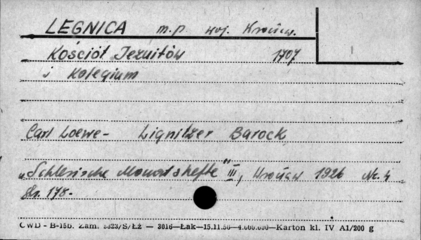 LEGNICA m.p woj. Wrocław.
Kościół Jezuitów 1707
i Kolegium
Carl Loewe- Lignitzer Barock
"Schlesische Monatshefte" III, Wrocław 1926 Nr. 4
str. 178.
CWD - B-156. Zam. 3823/S/Łż — 3016—Łak—15.11.50—4.000.000—Karton kl. IV A1/200 g